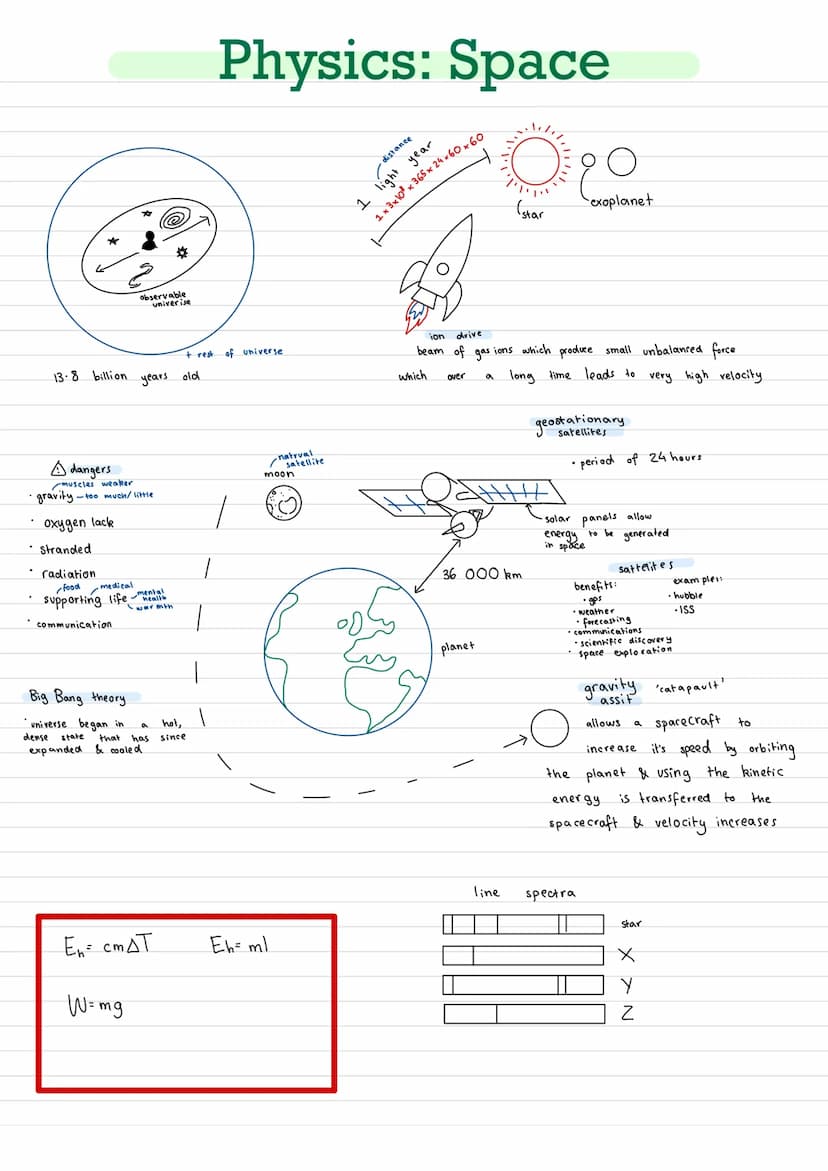 Physics: Space
distance
1 light year
1 x 3x10⁸ x 365 x 24 x 60 x 60
star
exoplanet
observable
univerise
+ rest of universe
13.8 billion years old
ion drive
beam of gas ions which produce small unbalanred force
which over a long time leads to very high velocity
geostationary
satellites
• period of 24 hours
solar panels allow
energy to be generated
in space
natrual
satellite
moon
! dangers
muscles weaker
• gravity - too much/little
• oxygen lack
• stranded
• radiation
food medical
• supporting life
mental
health
warmth
• communication
36 000 km
planet
sattelites
benefits:
• gps
• weather
• forecasting
• communications
• scientific discovery
• space exploration
examples:
• hubble
• ISS
Big Bang theory
'universe began in a hot,
dense state that has since
expanded & cooled
gravity 'catapault'
assit
allows a spacecraft to
increase it's speed by orbiting
the planet & using the kinetic
energy is transferred to the
spacecraft & velocity increases
line spectra
star
X
Y
Z
Eₕ= cmΔT
Eh= ml
W=mg